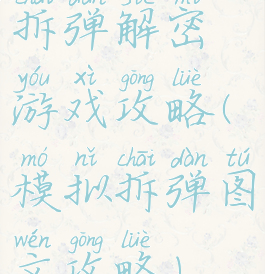 chāi dàn jiě mì
拆弹解密
yóu xì gōng lüè
游戏攻略(
mó nǐ chāi dàn tú
模拟拆弹图
wén gōng lüè
文攻略)